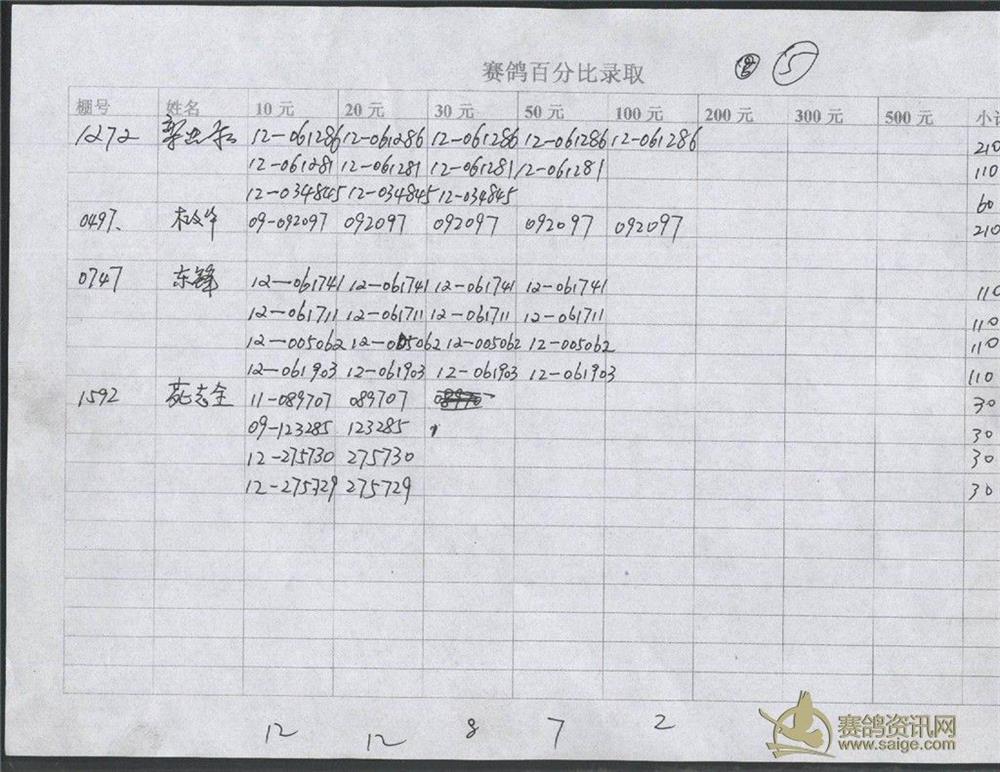 赛鸽百分比录取 ⑤
棚号 姓名 10元 20元 30元 50元 100元 200元 300元 500元 小
1272 12-061286 12-061286 12-061286 12-061286 12-061286 210
12-061281 12-061281 12-061281 12-061281 110
12-034845 12-034845 12-034845 60
0497、 09-092097 092097 092097 092097 092097 210
0747 东锋 12-061741 12-061741 12-061741 12-061741 110
12-061711 12-061711 12-061711 12-061711 110
12-005062 12-005062 12-005062 12-005062 110
12-061903 12-061903 12-061903 12-061903 110
1592 志全 11-089707 089707 30
09-123285 123285 30
12-275730 275730 30
12-275729 275729 30
12 12 8 7 2
赛鸽资讯网
www.saige.com